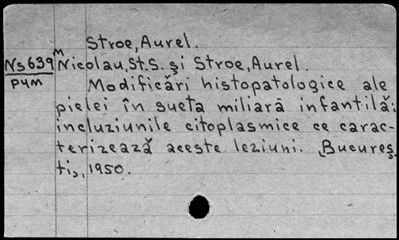 Stroe, Aurel.
Ns639 m Nicolau, St. S. și Stroe, Aurel.
pym Modificări histopatologice ale
pielei în sueta miliară infantilă:
incluziunile citoplasmice ce carac-
terizează aceste leziuni. Bucureș-
ti, 1950.